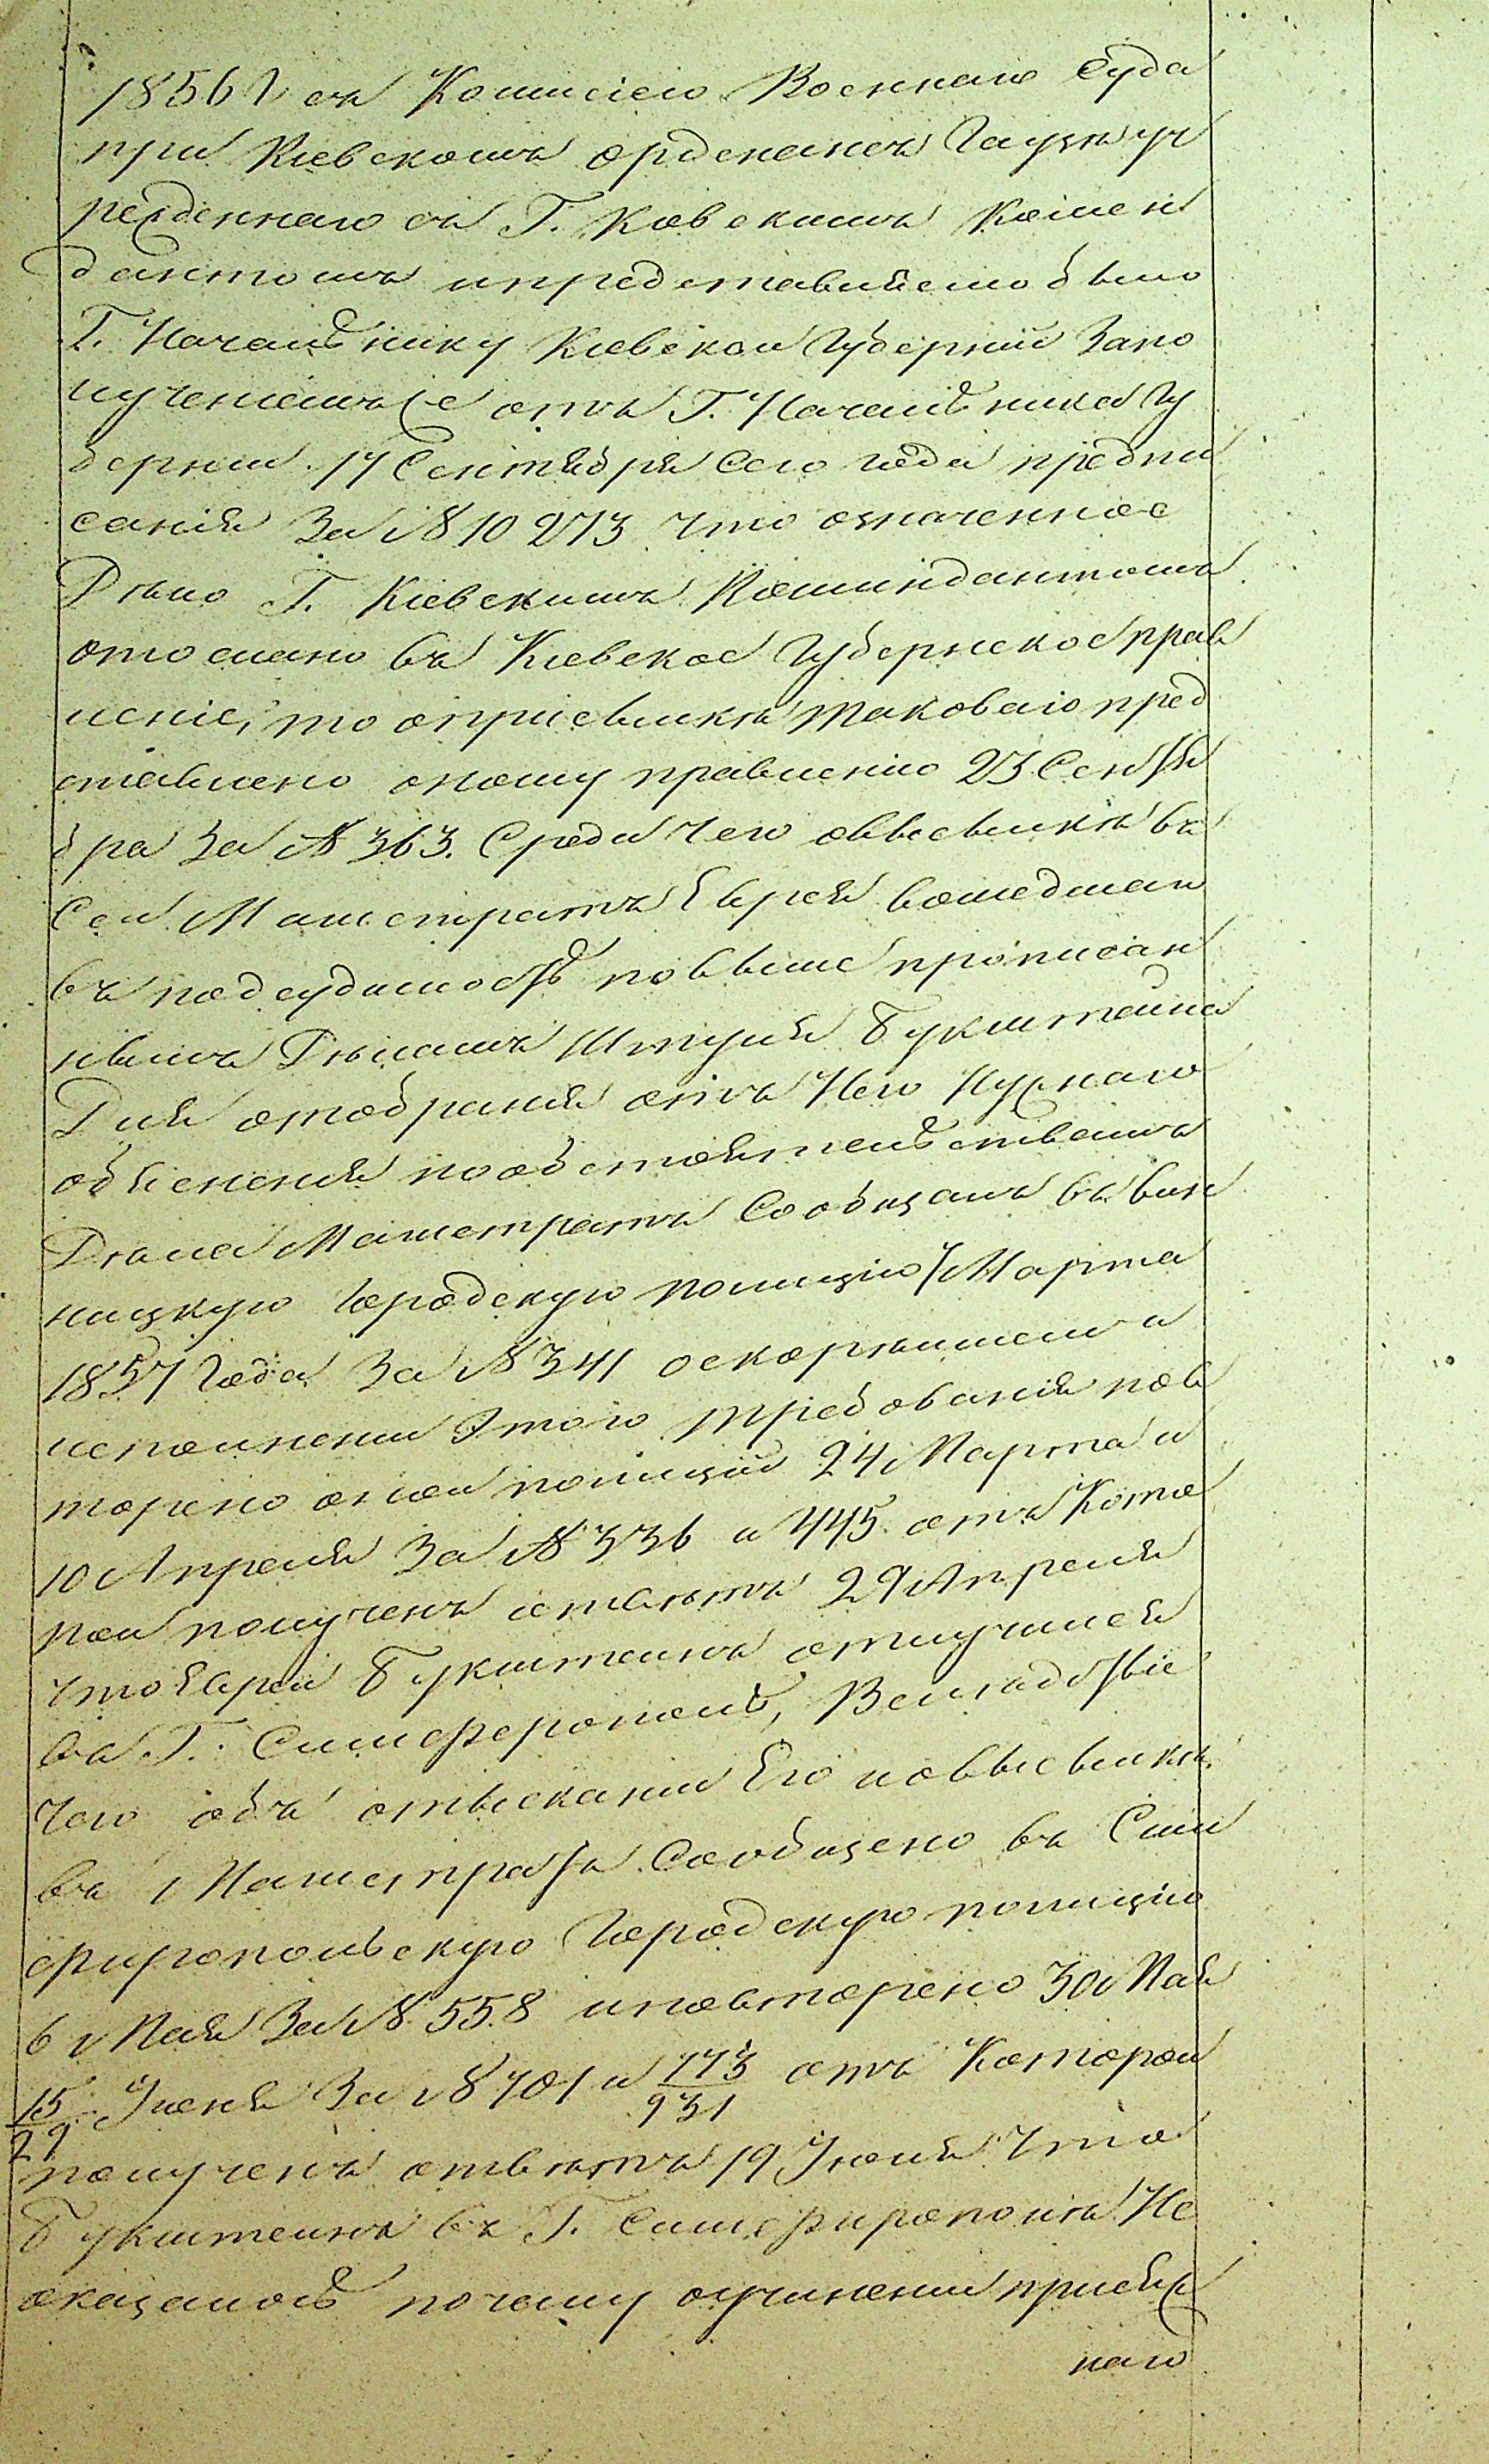 1856 г. съ Комисіею Военнаго Суда
при Кіевскомъ орденансъ Гаузѣ уч
режденнаго съ Г. Кіевскимъ Комен
дантомъ и представлено было
Г. Начальнику Кіевской Губерніи За по
лученіемъ же отъ Г. Начальника Гу
берніи 17 Сентября Сего года предпи
санія За № 10273 что означенное
Дѣло Г. Кіевскимъ Коминдантомъ
отослано въ Кіевское Губернское прав
леніе, то о присылкѣ таковаго пред
ставлено оному правленію 23 Сентя
бра За № 363. Среди чего о высылкѣ въ
Сей Магистратъ Еврея вошедшаго
въ подсудимость по выше прописан
нымъ Дѣламъ Штруля Букштейна
Для отобранія отъ Него Нужнаго
объясненія по обстоятельствамъ
Дѣла Магистратъ Сообщалъ въ Вин
ницкую Городскую полицію 7 Марта
1857 Года За № 341 о скорѣйшем и
исполнении Этого требованія пов
торено оной полиціи 24 Марта и
10 Апреля За № 336 и 445 отъ Кото
рой полученъ отвѣтъ 29 Апреля
что Еврей Букштейнъ отлучился
въ Г. Симферополь, Вследствіе
чего объ отысканіи Его и о высылкѣ
въ Магистратъ Сообщено въ Сим
фиропольскую Городскую полицію
6 Мая За № 558 и повторено 30 Мая
15/29 Іюня За № 701 и 773/931 отъ Которой
полученъ отвѣтъ 19 Іюля что
Букштейнъ въ Г. Симфирополѣ Не
оказалось почему о учинении присяж
наго